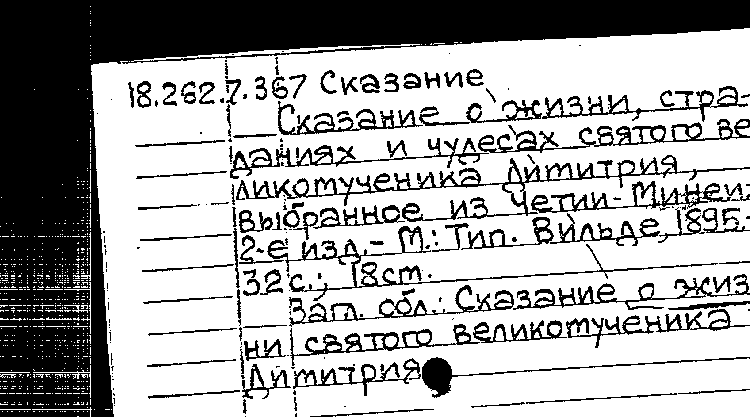 18.262.7.367 Сказание
Сказание о жизни, стра-
даниях и чудесах святого ве
ликомученика Димитрия,
выбранное из Четии-Минеи.
2-е изд.- М.: Тип. Вильде, 1895.-
32 с.; 18 cm.
Загл. обл.: Сказание о жиз
ни святого великомученика
Димитрия